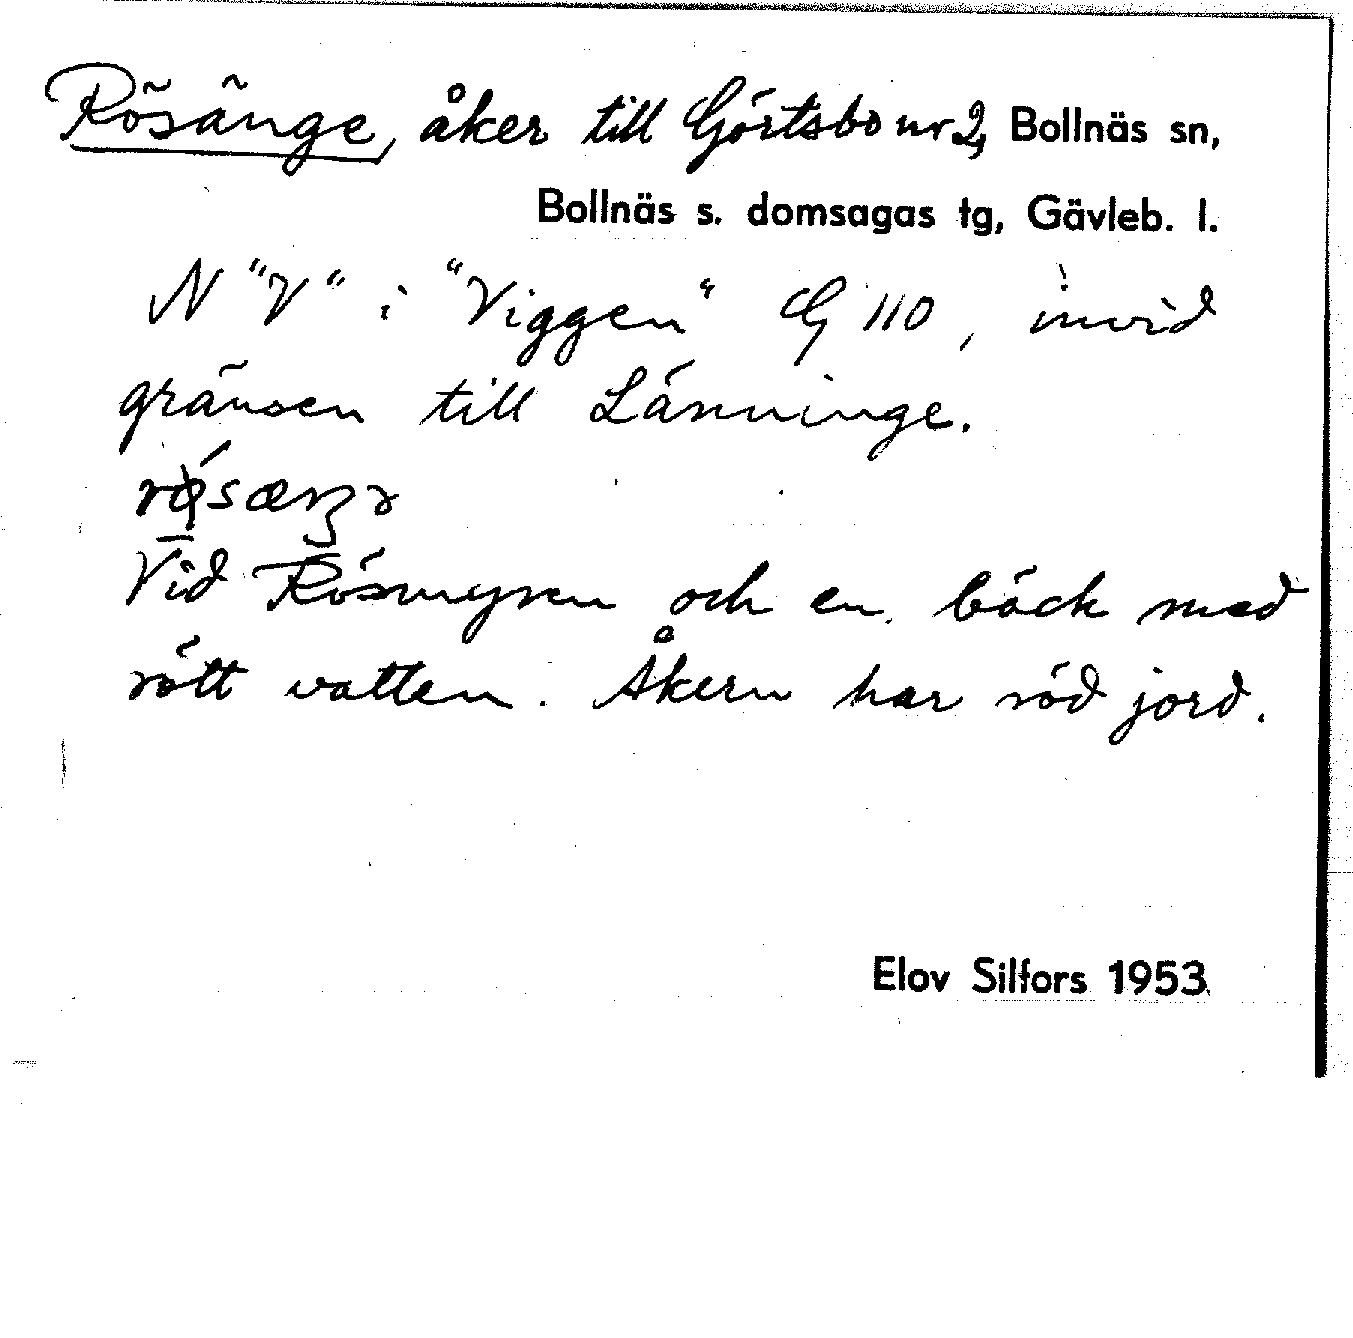 Rösänge, åker till Görtsbo nr 2, Bollnäs sn,
Bollnäs s. domsagas tg, Gävleb. l.
N "V" i "Viggen" G 110, invid
gränsen till Länninge.
Vid Rösmyren och en bäck med
rött vatten. Åkern har röd jord.
Elov Silfors 1953